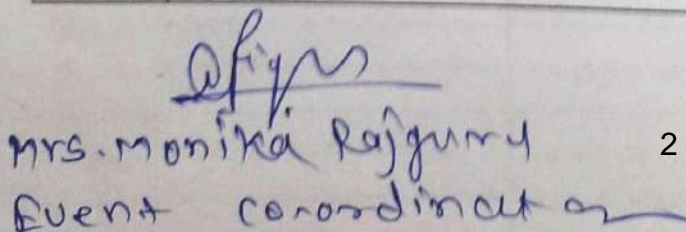 Mrs. Monika Rajguru
2
Event Co-ordinator